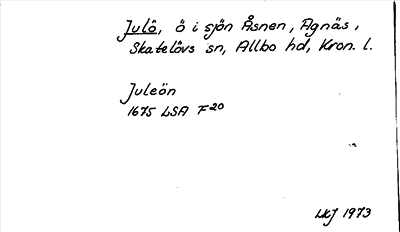 Julö, ö i sjön Åsnen, Agnäs,
Skatelövs sn, Allbo hd, Kron. l.
Juleön
1675 LSA F20
LKJ 1973